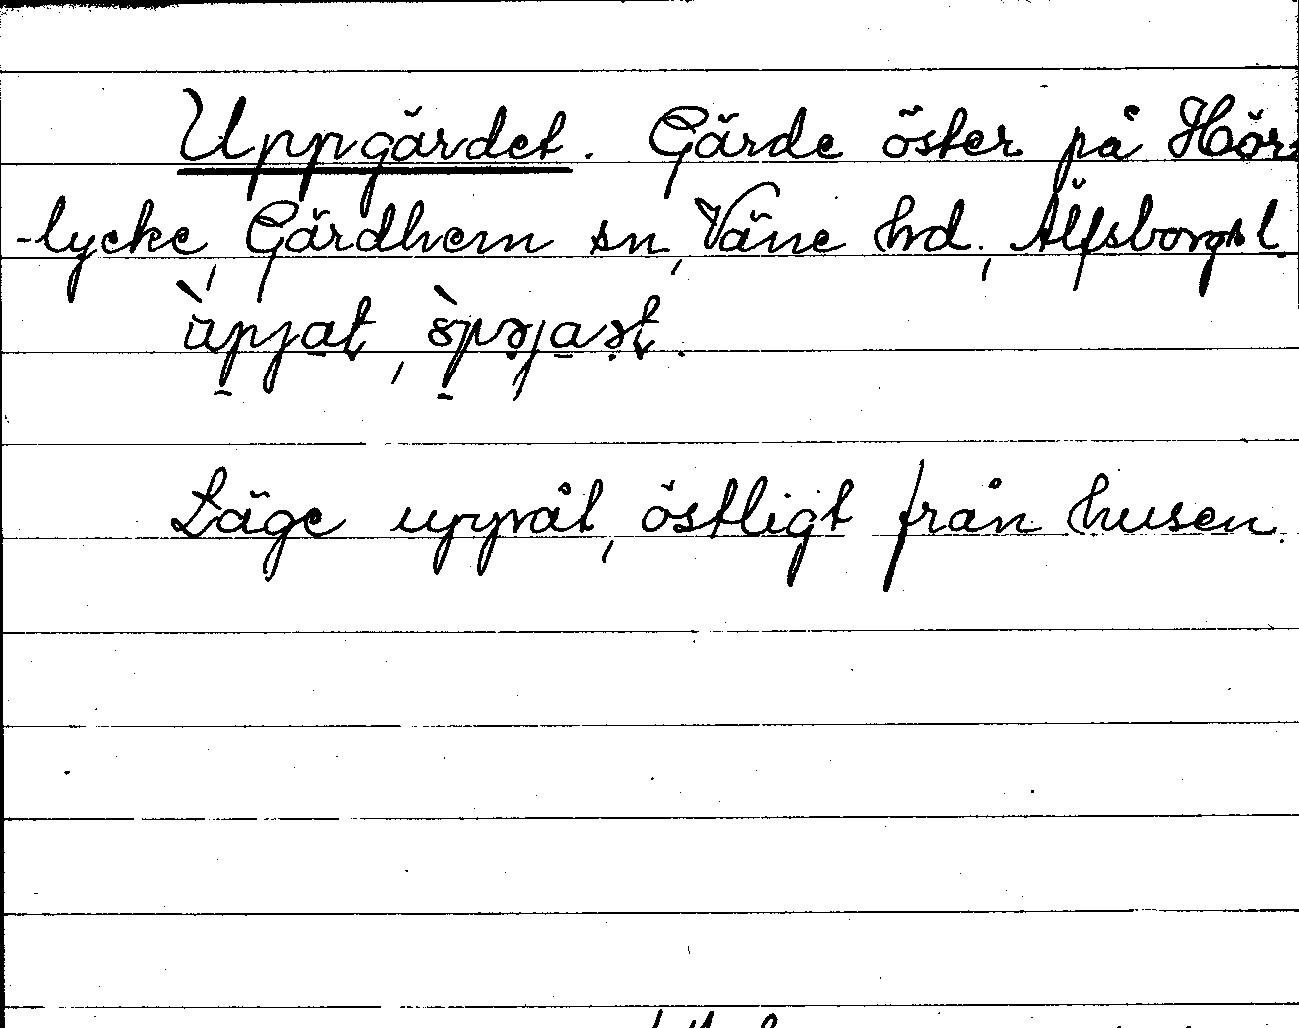 Uppgärdet. Gärde öster på Hör-
-lycke, Gärdhem sn, Väne hd., Älfsborgs l.
Läge uppåt, östligt från husen.